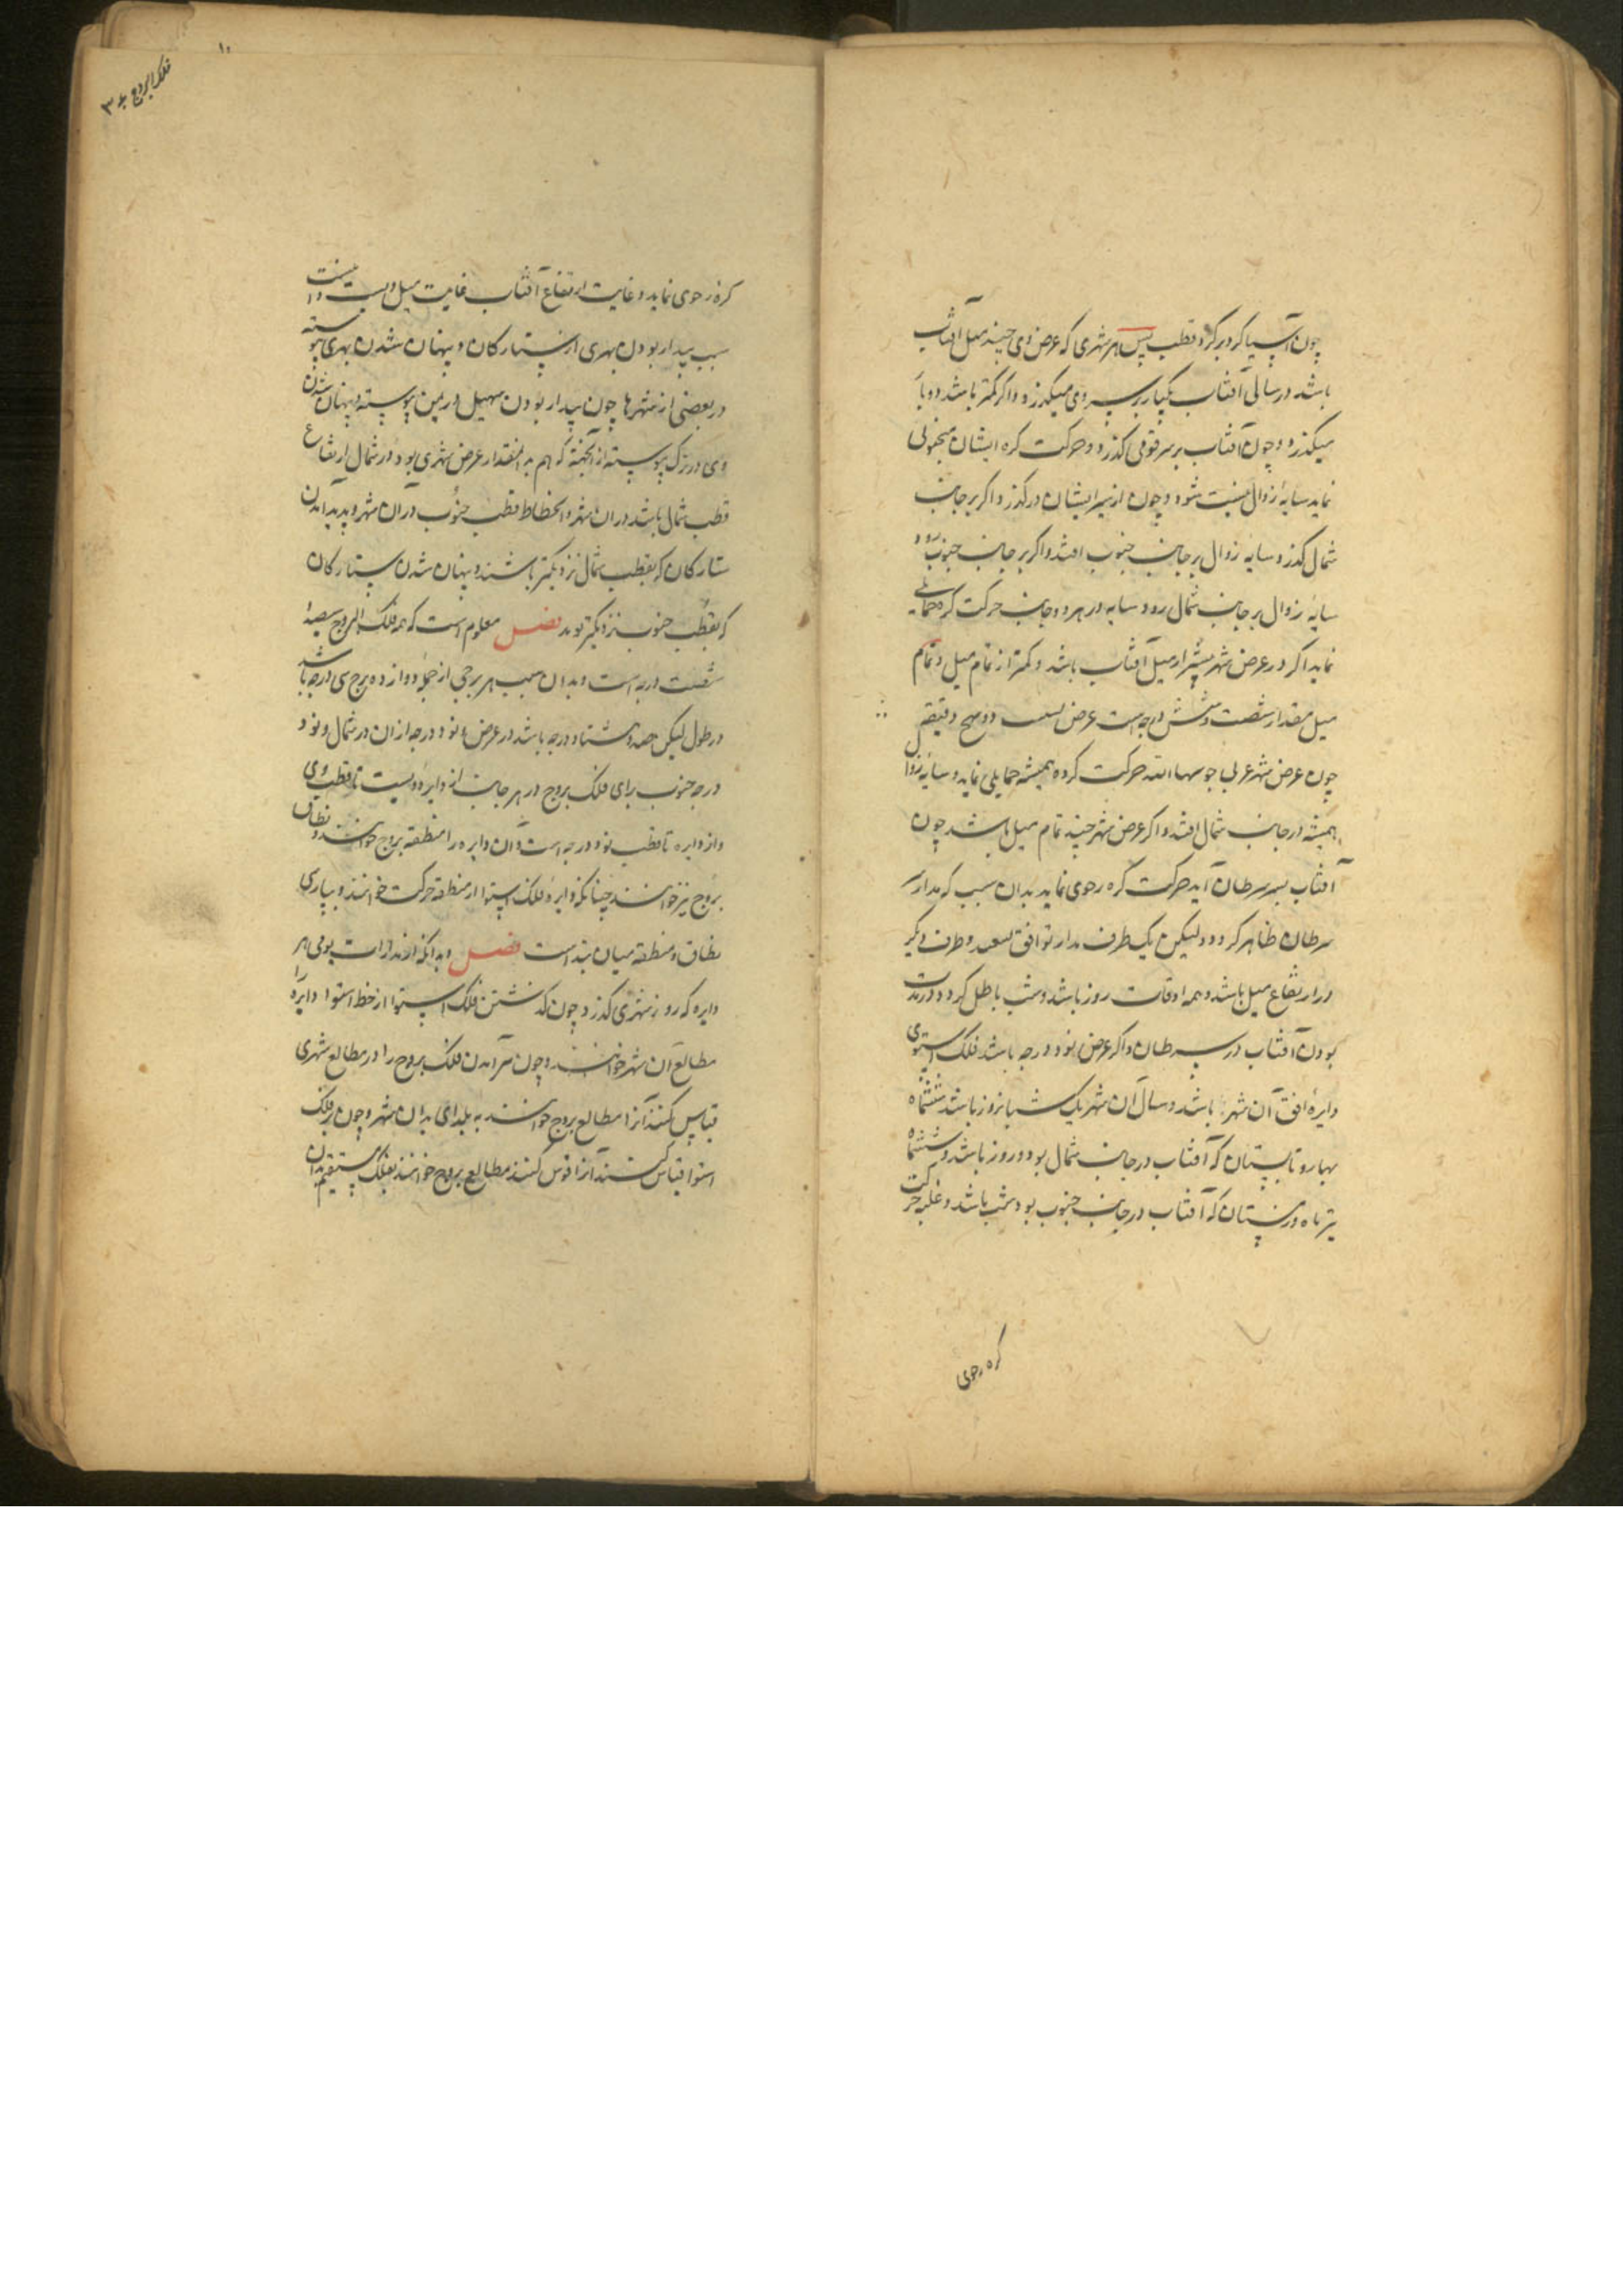 چون آسیا کردبرکرد قطب پس هر شهری که عرض وی چند میل آفتاب
باشد در سالی آفتاب یکبار بر سر وی میکذرد و اکر کمتر باشد دوبار
میکذرد و چون آفتاب بر سر قومی کذرد و حرکت کره ایشان
نماید سایهٔ زوال نیست شود و چون از سر ایشان درکذرد اکر بر جانب
شمال کذرد سایه زوال بر جانب جنوب افتد و اکر بر جانب جنوب رود
سایهٔ زوال بر جانب شمال رود سایه در هر دو جانب حرکت کره حمایلی
نماید اکر در عرض شهر بیشتر از میل آفتاب باشد و کمتر از تمام میل و تمام
میل مقدار شصت و شش درجه است عرض دقیقه
چون عرض شهر حرکت کرده همیشه حمایلی نماید و سایه زوال
همیشه در جانب شمال افتد و اکر عرض شهر چند تمام میل باشد چون
آفتاب بسر سرطان آید حرکت کره رحوی نماید بدان سبب که مدار سر
سرطان ظاهر کردد ولیکن یک طرف مدار توافق و طرف دیکر
در ارتفاع میل باشد و همه اوقات روز باشد و شب باطل کردد در مدت
بودن آفتاب در سرطان و اکر عرض نود درجه باشد فلک استوی
دایرهٔ افق آن شهر باشد و سال آن شهر یک شبانروز باشد ششماه
بهار و تابستان که آفتاب در جانب شمال بود روز باشد و ششماه
تیرماه و زمستان که آفتاب در جانب جنوب بود شب باشد و غلبه حرکت
کره رحوی
فلک البروج
کره رحوی نماید و غایت ارتفاع آفتاب غایت میل و
سبب پیدار بودن بهری از ستارکان و پنهان شدن بهری پیوسته
در بعضی از شهرها چون پیدار بودن سهیل در زمین پیوسته و پنهان شدن
وی در ترک پیوسته از آنجهة که هم بدانمقدار عرض شهری بود در شمال ارتفاع
قطب شمال باشد در ان شهر و انحطاط قطب جنوب در آن شهر و پدید آمدن
ستارکان که بقطب شمال نزدیکتر باشند و پنهان شدن ستارکان
که بقطب جنوب نزدیکتر بوند فصل معلوم است که همه فلک البروج سیصد و
شصت درجه است و بدان سبب هر برجی از جملهٔ دوازده برج سی درجه باشد
در طول لیکن صد و هشتاد درجه باشد در عرض و نود درجه از ان در شمال و نود
درجه جنوب برای فلک بروج در هر جانب از دایره ویست تا قطب وی
و از دایره تا قطب نود درجه است و آن دایره را منطقه بروج خوانند و نطاق
بروج نیز خوانند چنانکه دایرهٔ فلک استوا را منطقه حرکت خوانند و بپارسی
نطاق و منطقه میان بند است فصل و بدانکه از مدارات یومی هر
دایره که روز شهری کذرد چون کذشتن فلک استوا از خط استوا دایره را
مطالع آن شهر خوانند و چون برآمدن فلک بروج را در مطالع شهری
قیاس کنند آنرا مطالع بروج خوانند به بلدای بدان شهر و چون بر فلک
استوا قیاس کنند آنرا قوس کنند مطالع بروج خوانند بفلک مستقیم بدان